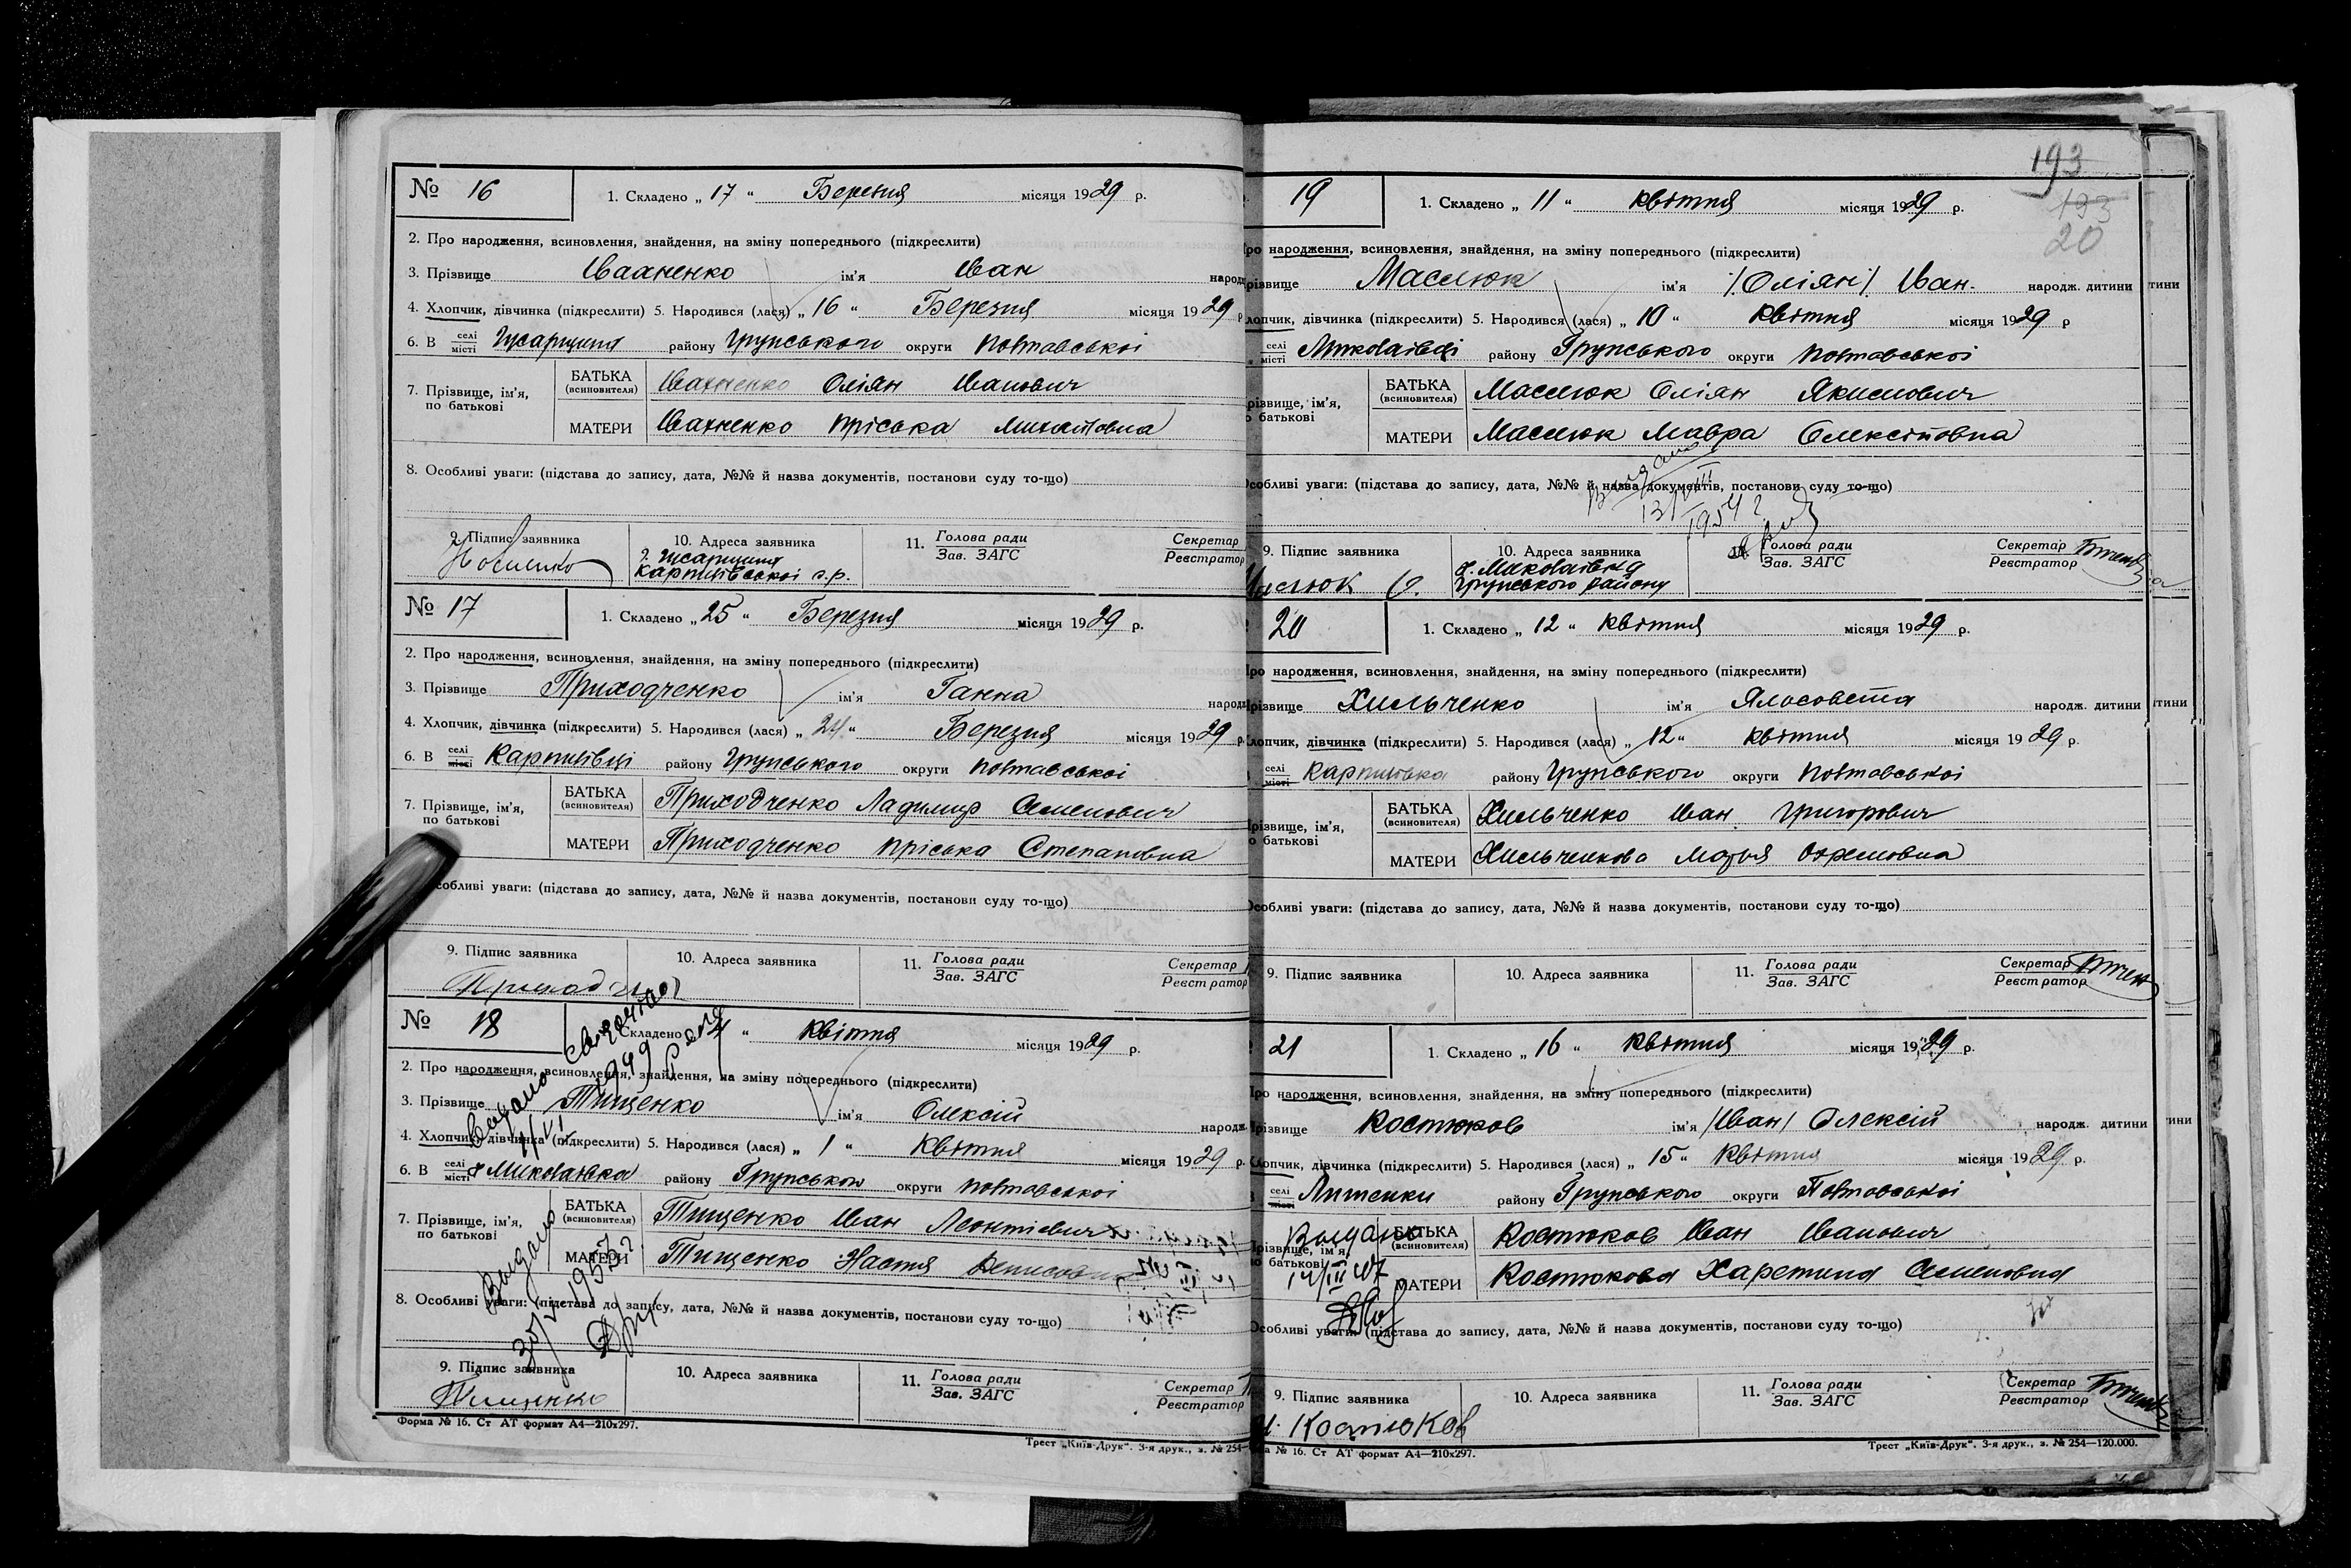 № 16
1. Складено „ 17 “ Березня місяця 1929 р.
2. Про народження, всиновлення, знайдення, на зміну попереднього (підкреслити)
3. Прізвище Івахненко ім'я Іван народ
4. Хлопчик, дівчинка (підкреслити) 5. Народився (лася) „ 16 “ Березня місяця 1929 р
6. В селі місті район у Грунського округи Полтавської
7. Прізвище, ім'я, по батькові
БАТЬКА (всиновителя) Івахненко Оліян Іванович
МАТЕРИ Івахненко Пріська Михайловна
8. Особливі уваги: (підстава до запису, дата, №№ й назва документів, постанови суду то-що)
9. Підпис заявника 10. Адреса заявника 11. Голова ради Зав. ЗАГС Секретар Реєстратор
Карпилівської с.р.
№ 17
1. Складено „ 25 “ Березня місяця 1929 р.
2. Про народження, всиновлення, знайдення, на зміну попереднього (підкреслити)
3. Прізвище Приходченко ім'я Ганна народ
4. Хлопчик, дівчинка (підкреслити) 5. Народився (лася) „ 24 “ Березня місяця 1929 р.
6. В селі місті Карпилівці району Грунського округи Полтавської
7. Прізвище, ім'я, по батькові
БАТЬКА (всиновителя) Приходченко Ладимир Семенович
МАТЕРИ Приходченко Пріська Степановна
собливі уваги: (підстава до запису, дата, №№ й назва документів, постанови суду то-що)
9. Підпис заявника 10. Адреса заявника 11. Голова ради Зав. ЗАГС Секретар Реєстратор
№ 18
Складено „ 4 “ квітня місяця 1929 р.
2. Про народження, всиновлення, знайдення, на зміну попереднього (підкреслити)
3. Прізвище Тищенко ім'я Олексій народж.
4. Хлопчик, дівчинка (підкреслити) 5. Народився (лася) „ 1 “ Квітня місяця 1929 р.
6. В селі місті Миколаївка району Грунського округи Полтавської
7. Прізвище, ім'я, по батькові
БАТЬКА (всиновителя) Тищенко Іван Леонтієвич
МАТЕРИ Тищенко Настя Денисовна
8. Особливі уваги: (підстава до запису, дата, №№ й назва документів, постанови суду то-що)
Выдано 1953
9. Підпис заявника 10. Адреса заявника 11. Голова ради Зав. ЗАГС Секретар Реєстратор
Тищенко
Форма № 16. Ст АТ формат А4—210х297.
Трест „Київ-Друк“. 3-я друк., з. № 254—
193
193
20
19
1. Складено „ 11 “ квітня місяця 1929 р.
ро народження, всиновлення, знайдення, на зміну попереднього (підкреслити)
різвище Маслюк ім'я /Оліян/ Іван народж. дитини
лопчик, дівчинка (підкреслити) 5. Народився (лася) „ 10 “ Квітня місяця 1929 р
селі місті Миколаївці району Грунського округи Полтавської
різвище, ім'я, о батькові
БАТЬКА (всиновителя) Маслюк Оліян Якимович
МАТЕРИ Маслюк Мавра Олексіївна
собливі уваги: (підстава до запису, дата, №№ й назва документів, постанови суду то-що)
1954 г.
9. Підпис заявника 10. Адреса заявника 11. Голова ради Зав. ЗАГС Секретар Реєстратор
с. Миколаївка
Грунського району
20
1. Складено „ 12 “ квітня місяця 1929 р.
ро народження, всиновлення, знайдення, на зміну попереднього (підкреслити)
різвище Хильченко ім'я Ялосовета народж. дитини
лопчик, дівчинка (підкреслити) 5. Народився (лася) „ 12 “ квітня місяця 1929 р.
селі місті Карпиловка району Грунського округи Полтавської
різвище, ім'я, о батькові
БАТЬКА (всиновителя) Хильченко Іван Григорович
МАТЕРИ Хильченкова Марья Охремовна
собливі уваги: (підстава до запису, дата, №№ й назва документів, постанови суду то-що)
9. Підпис заявника 10. Адреса заявника 11. Голова ради Зав. ЗАГС Секретар Реєстратор
21
1. Складено „ 16 “ квітня місяця 1929 р.
ро народження, всиновлення, знайдення, на зміну попереднього (підкреслити)
різвище Костюков ім'я /Іван/ Олексій народж. дитини
лопчик, дівчинка (підкреслити) 5. Народився (лася) „ 15 “ Квітня місяця 1929 р.
селі місті району Грунського округи Полтавської
різвище, ім'я, о батькові
БАТЬКА (всиновителя) Костюков Іван Іванович
МАТЕРИ Костюкова Харетина Семеновна
собливі уваги: (підстава до запису, дата, №№ й назва документів, постанови суду то-що)
9. Підпис заявника 10. Адреса заявника 11. Голова ради Зав. ЗАГС Секретар Реєстратор
И. Костюков
а № 16. Ст АТ формат А4—210х297.
Трест „Київ-Друк“. 3-я друк., з. № 254—120.000.